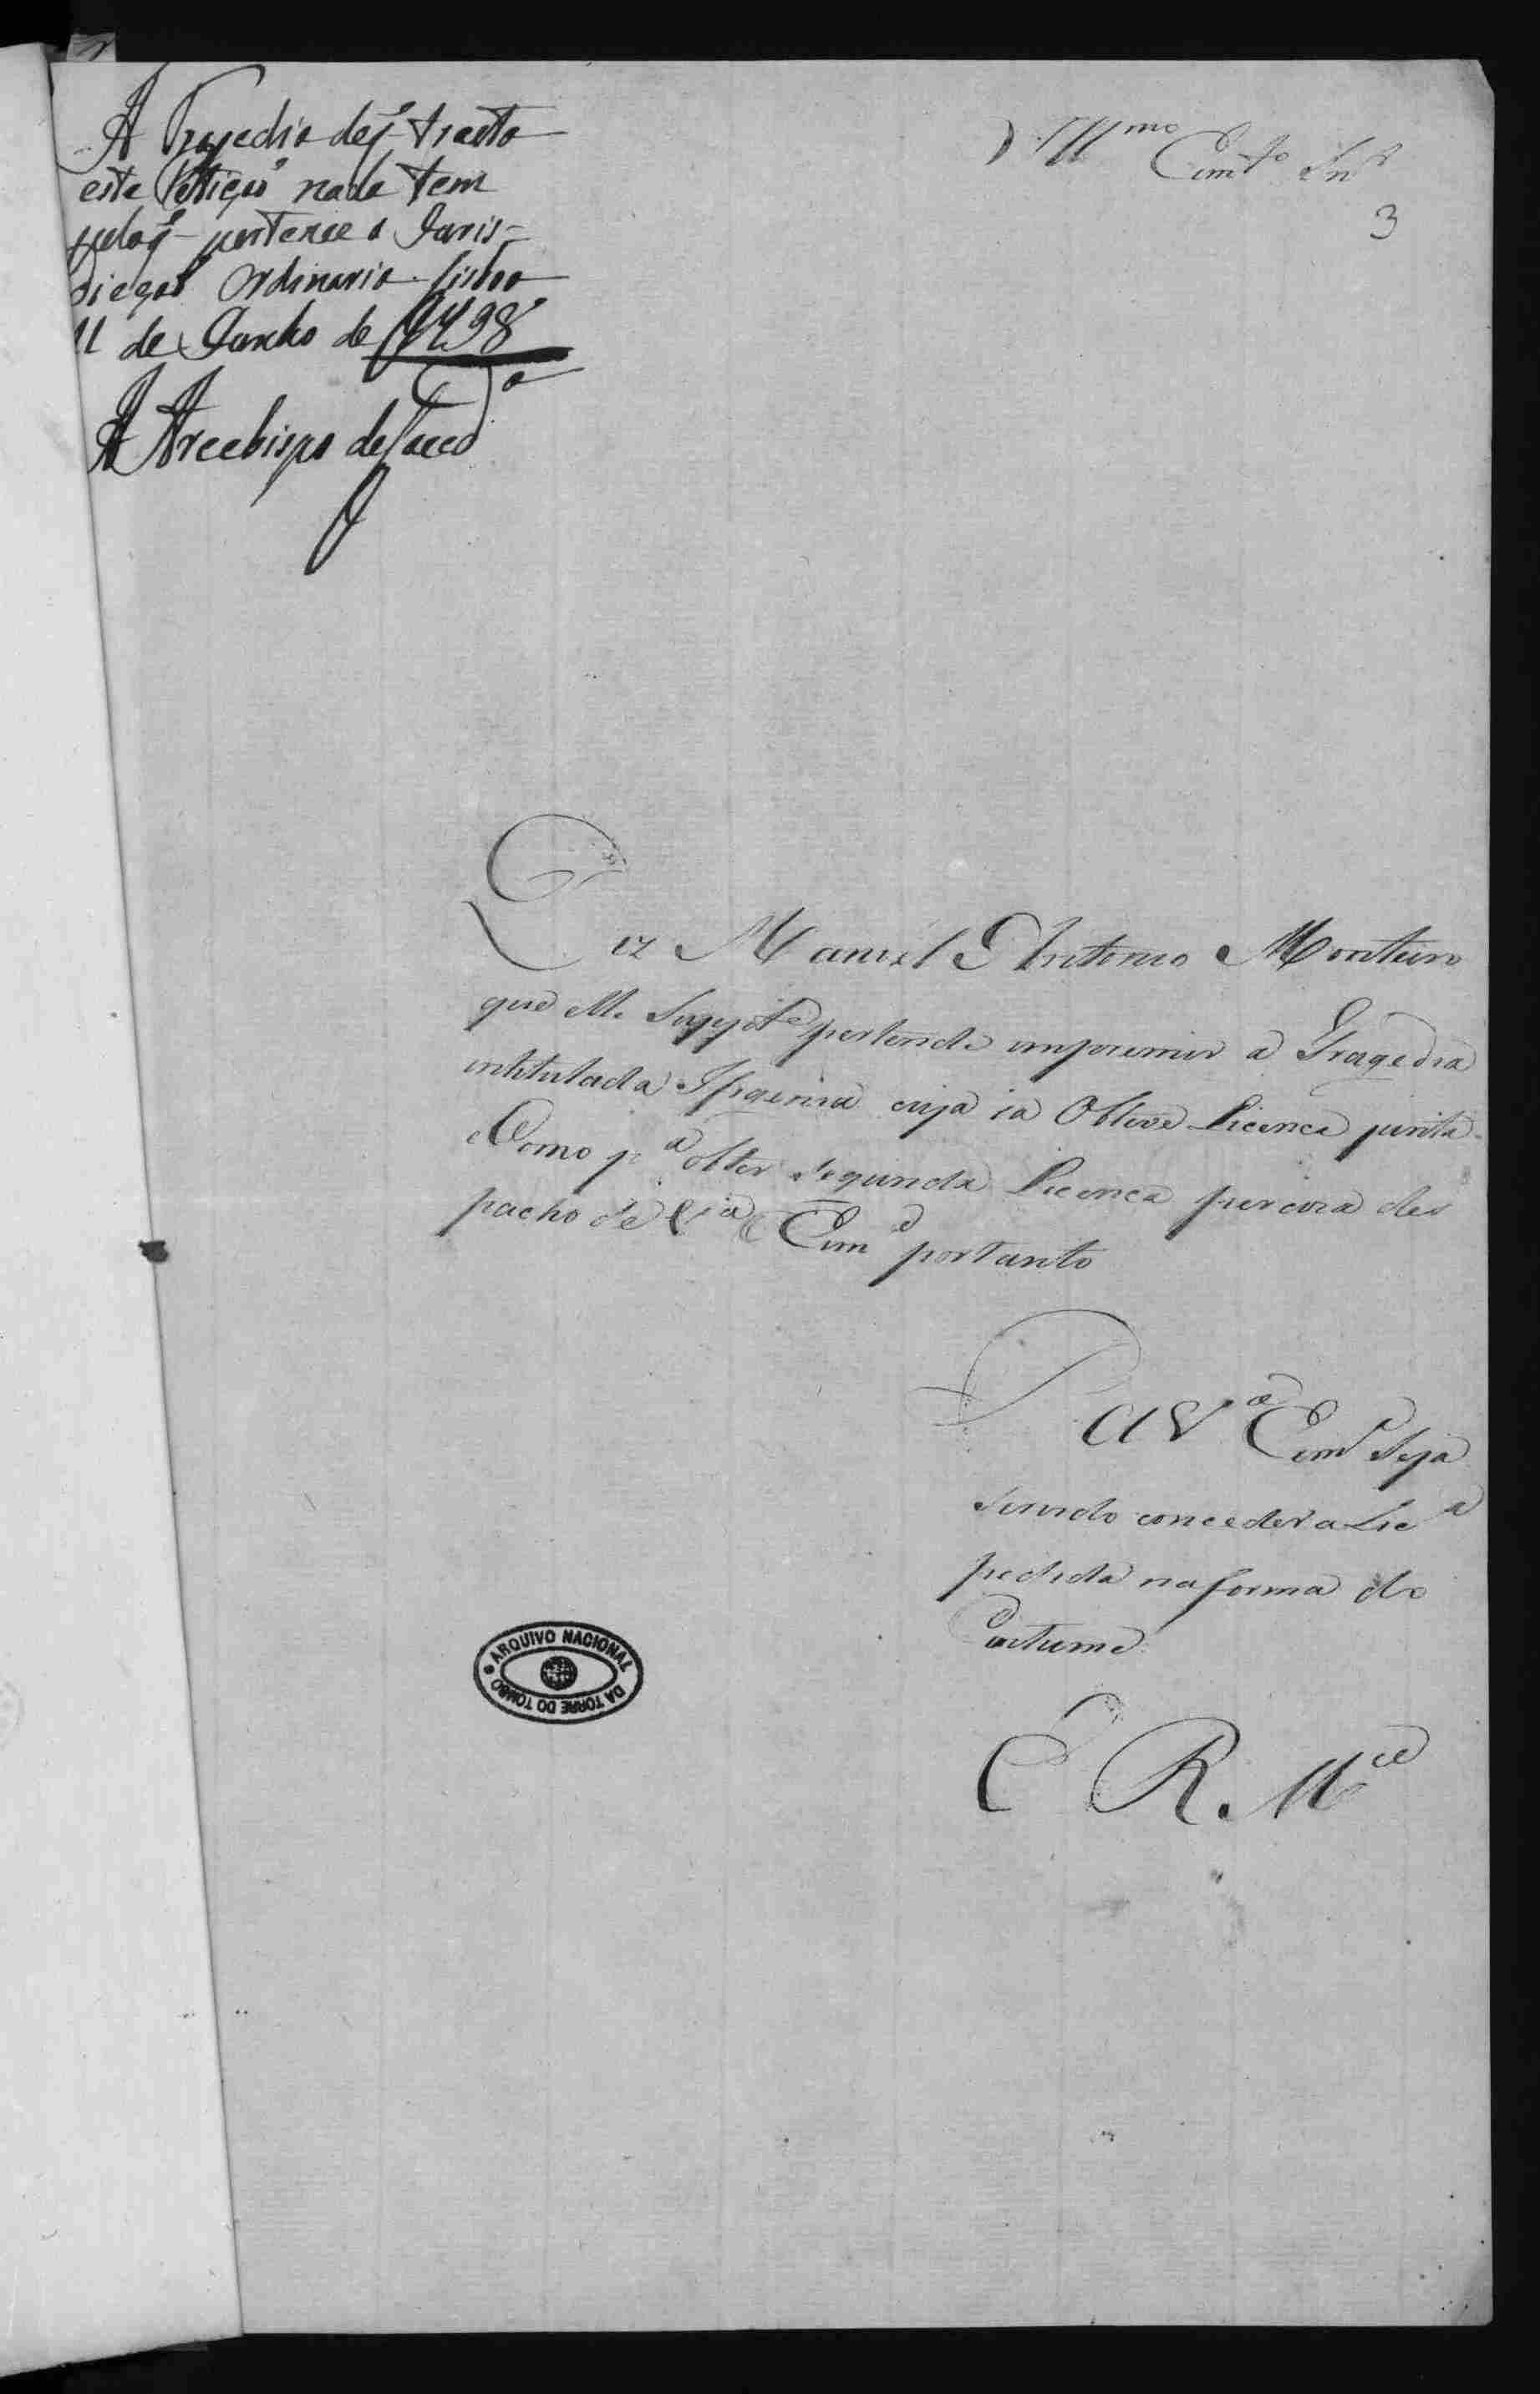 A Tragedia de q̃ tracta
esta Petiçaõ nada tem
pelo q̃ pertence a Juris=
diçaõ Ordinaria. Lisboa
11 de Junho de 1798
A Arcebispo de Laced^a
Ill^mo Em^mo Sn^r
3
Diz Manoel Antonio Monteiro
que elle Supp^te pertende imporemir a Tragedia
intitulada Ifigenia cuja ja Obteve Licenca junta
e Como p^a obter segunda Licenca percisa des
pacho de V^a Em^a portanto
P a V^a Em^a Seja
servido conceder a Lic^a
pedida na forma do
Custume
E R. M^ce
ARQUIVO NACIONAL
DA TORRE DO TOMBO